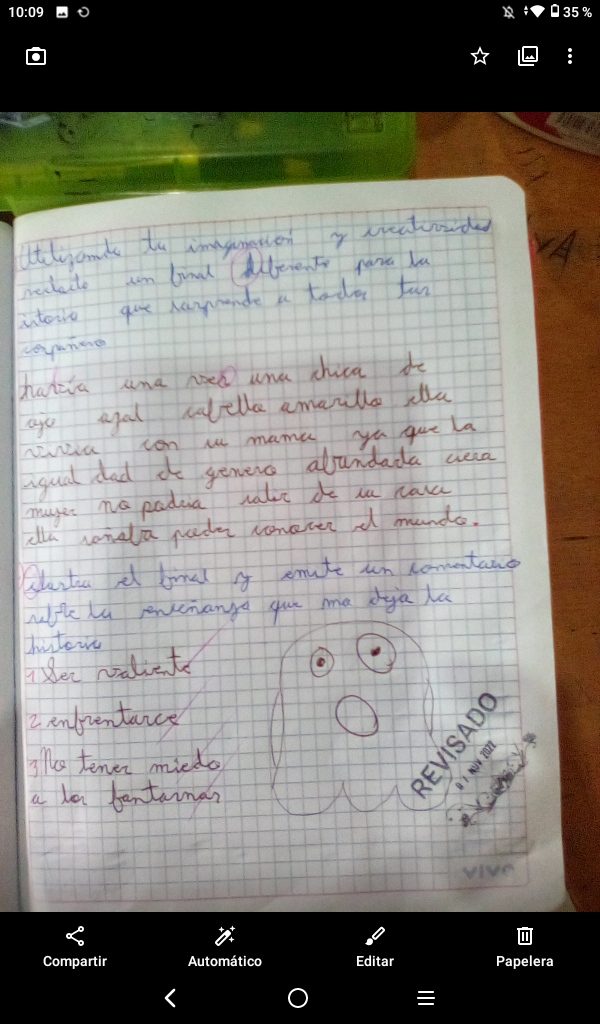 10:09
35 %
Utilizando tu imaginación y creatividad
redacto un final diferente para la
istoria que sorprende a todos tus
conpañero
había una vez una chica de
ojo azul cabello amarillo ella
vivia con su mama ya que la
igual dad de genero abundada
mujer no podia salir de su casa
ella soñaba poder conocer el mundo.
el final y emite un comentario
sobre la enseñanza que ma deja la
historia
1 Ser valiente
2 enfrentarce
3 No tener miedo
a los fantasmas
REVISADO
NOV 2022
vivo
Compartir
Automático
Editar
Papelera